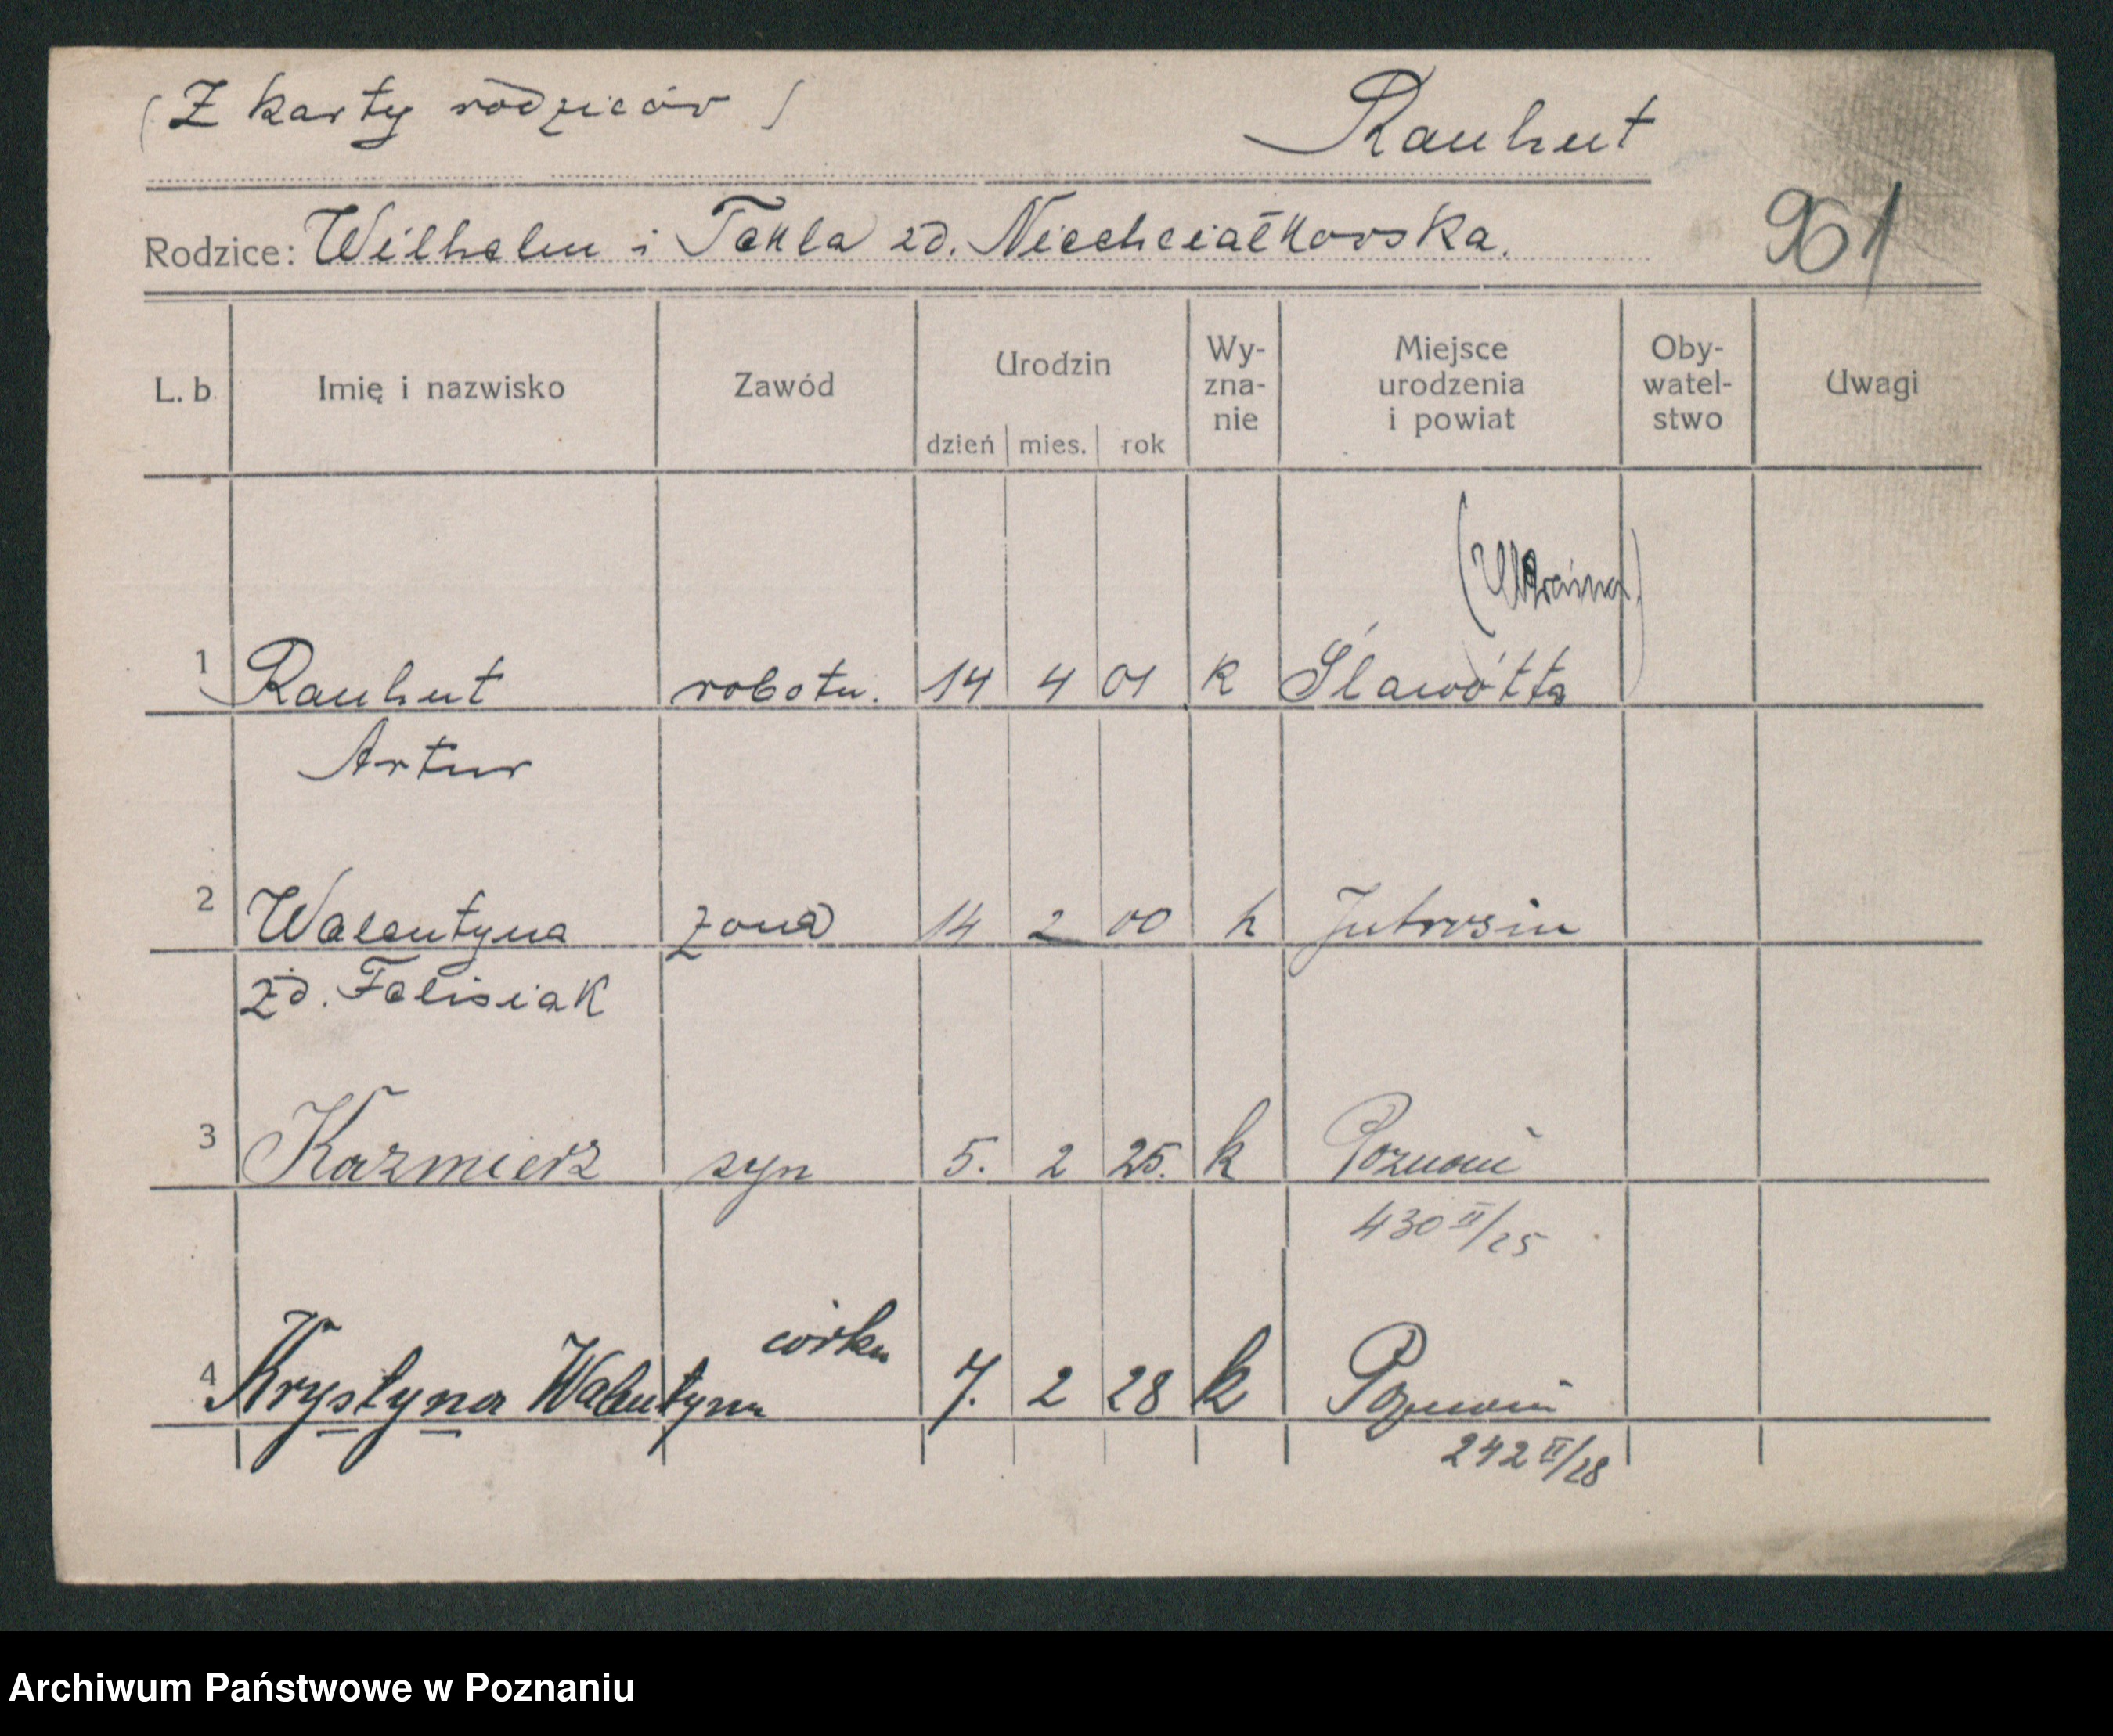 (Z karty rodziców)
Rauhut
Rodzice: Wilhelm i Tekla zd. Niechciałkowska.
961
L. b. Imię i nazwisko Zawód Urodzin Wy- Miejsce Oby- Uwagi
zna- urodzenia watel-
dzień mies. rok nie i powiat stwo
(Ukraina)
1 Rauhut robotn. 14 4 01 k Sławótta
Artur
2 Walentyna żona 14 2 00 k Jutrosin
zd. Felisiak
3 Kazmierz syn 5. 2 25. k Poznań
430 II/25
córka
4 Krystyna Walentyna 7. 2 28 k Poznań
242 II/28
Archiwum Państwowe w Poznaniu